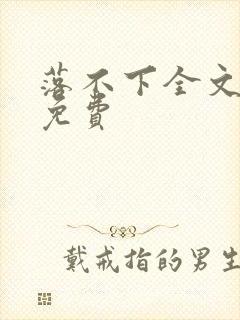 落不下全文
免费
戴戒指的男生